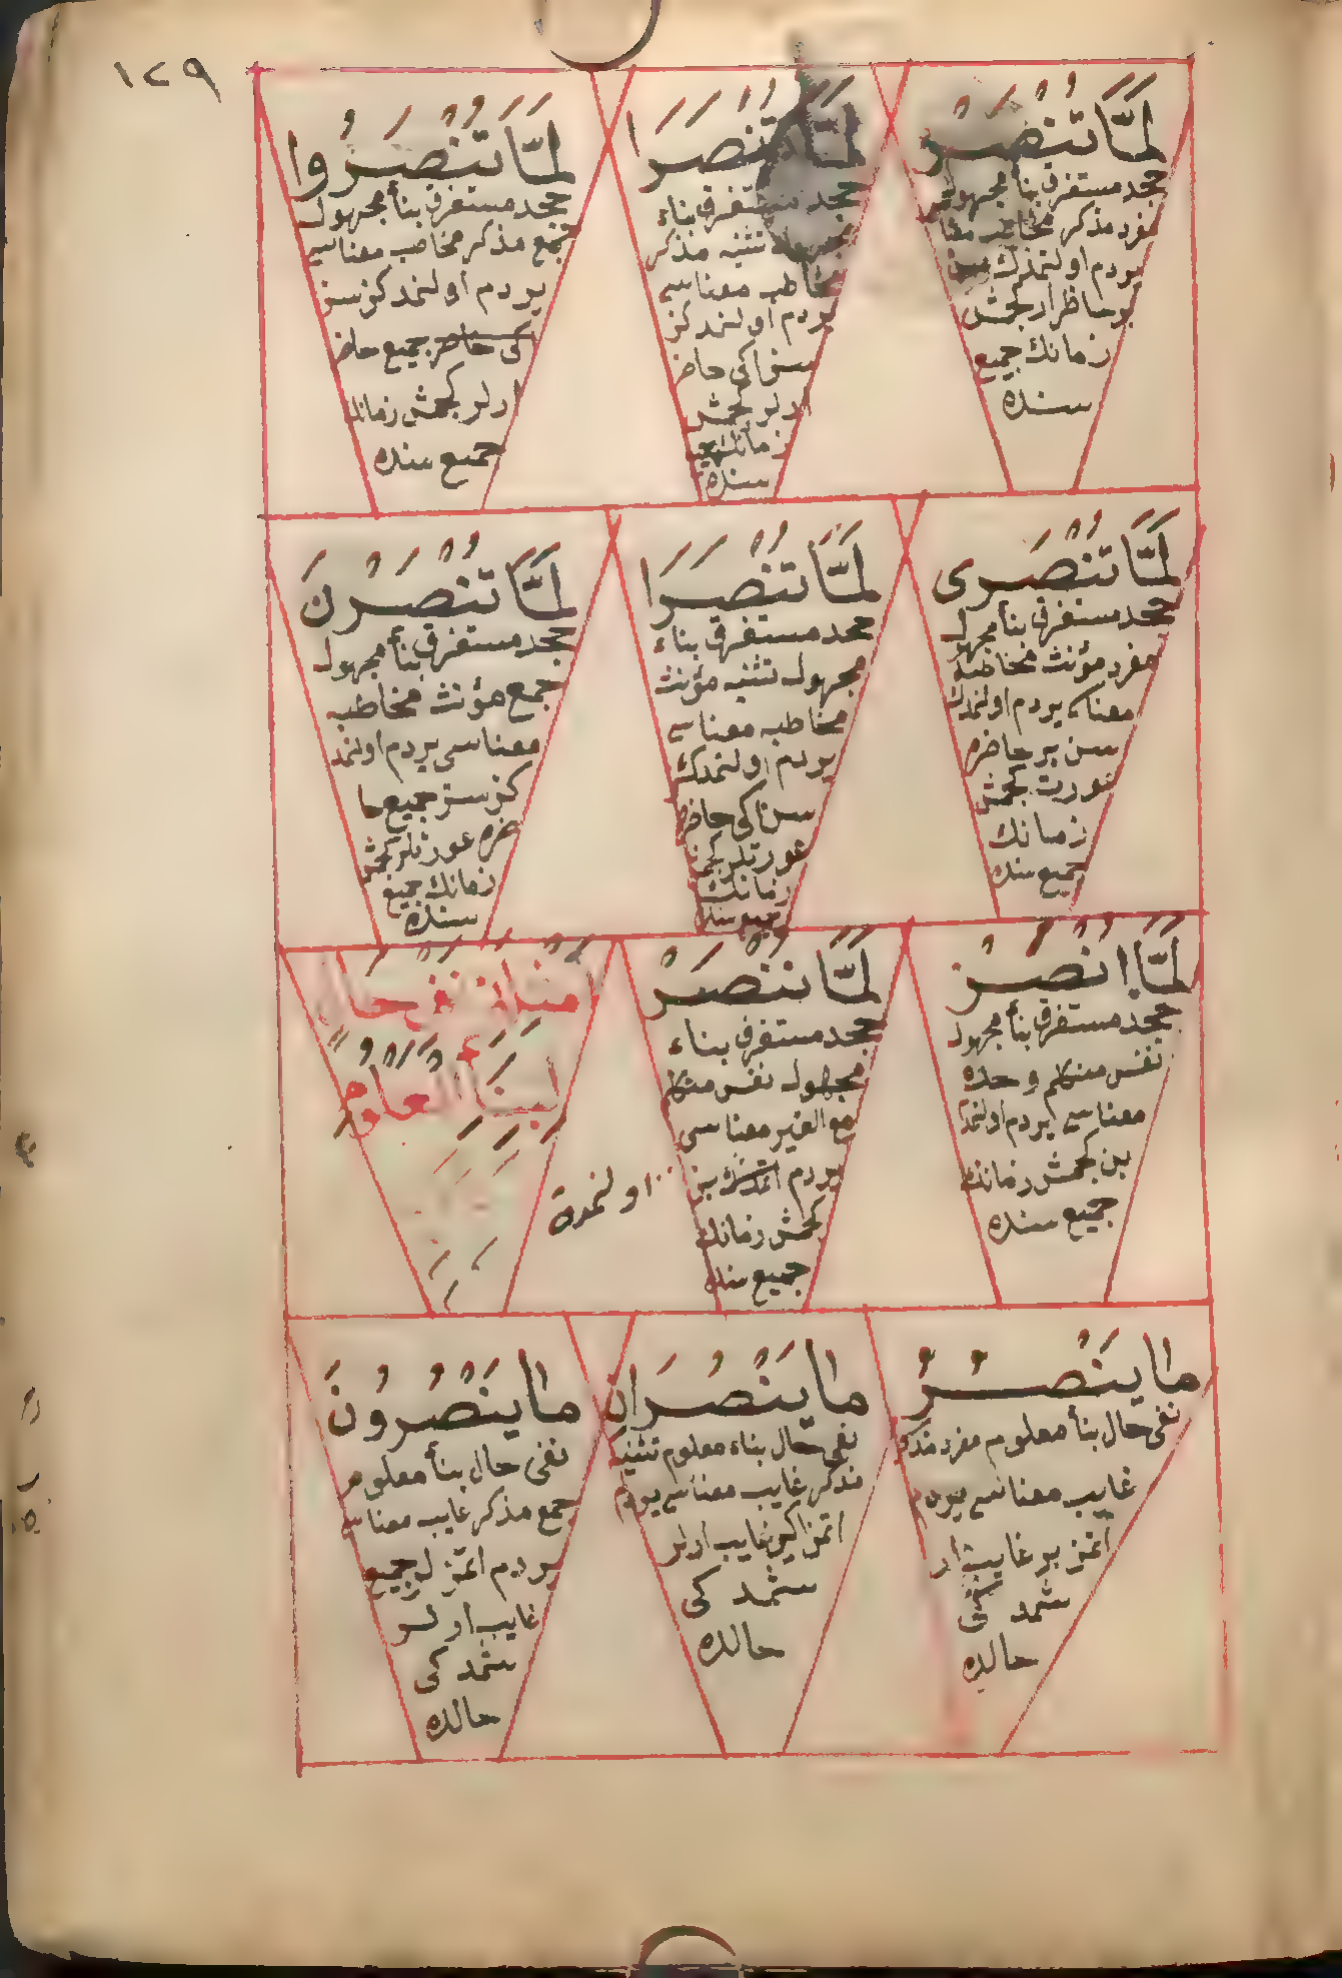 ١٢٩
لَمَّا تُنْصَرْ
جحد مستغرق بنأ مجهول
مفرد مذكر مخاطب معنا
يردم اولنمدك سن
بر حاظر ار كجمش
زمانك جميع
سنده
لَمَّا تُنْصَرَا
جحد مستغرق بناء
مجهول تثنيه مذكر
مخاطب معناسی
يردم اولنمدكز
سز ایكی حاضر
ارلر كجمش
زمانك جميع
سنده
لَمَّا تُنْصَرُوا
جحد مستغرق بنأ مجهول
جمع مذكر مخاطب معناسی
يردم اولنمدكز سز
جميع حاضر
ارلر كجمش زمانك
جميع سنده
لَمَّا تُنْصَرِی
جحد مستغرق بنأ مجهول
مفرد مؤنث مخاطبه
معناسی يردم اولنمدك
سن بر حاضره
عورت كجمش
زمانك
جميع سنده
لَمَّا تُنْصَرَا
جحد مستغرق بناء
مجهول تثنيه مؤنث
مخاطبه معناسی
يردم اولنمدكز
سز ایكی حاضره
عورتلر كجمش
زمانك
جميع سنده
لَمَّا تُنْصَرْنَ
جحد مستغرق بنأ مجهول
جمع مؤنث مخاطبه
معناسی يردم اولنمد
كز سز جميع حا
ضره عورتلر كجمش
زمانك جميع
سنده
لَمَّا اُنْصَرْ
جحد مستغرق بنأ مجهول
نفس متكلم وحده
معناسی يردم اولنمد
بن كجمش زمانك
جميع سنده
لَمَّا نُنْصَرْ
جحد مستغرق بناء
مجهول نفس متكلم
مع الغير معناسی
يردم بز
كجمش زمانك
جميع سنده
اولنمدق
امثلۀ نفی حال
لبنأ المعلوم
مَا يَنْصُرُ
نفی حال بنأ معلوم مفرد مذكر
غايب معناسی يردم
اتمز بر غايب ار
شمد كی
حالده
مَا يَنْصُرَانِ
نفی حال بناء معلوم تثنيه
مذكر غايب معناسی يردم
اتمز ایكی غايب ارلر
شمد كی
حالده
مَا يَنْصُرُونَ
نفی حال بنأ معلوم
جمع مذكر غايب معناسی
يردم اتمز لر جميع
غايب ارلر
شمد كی
حالده